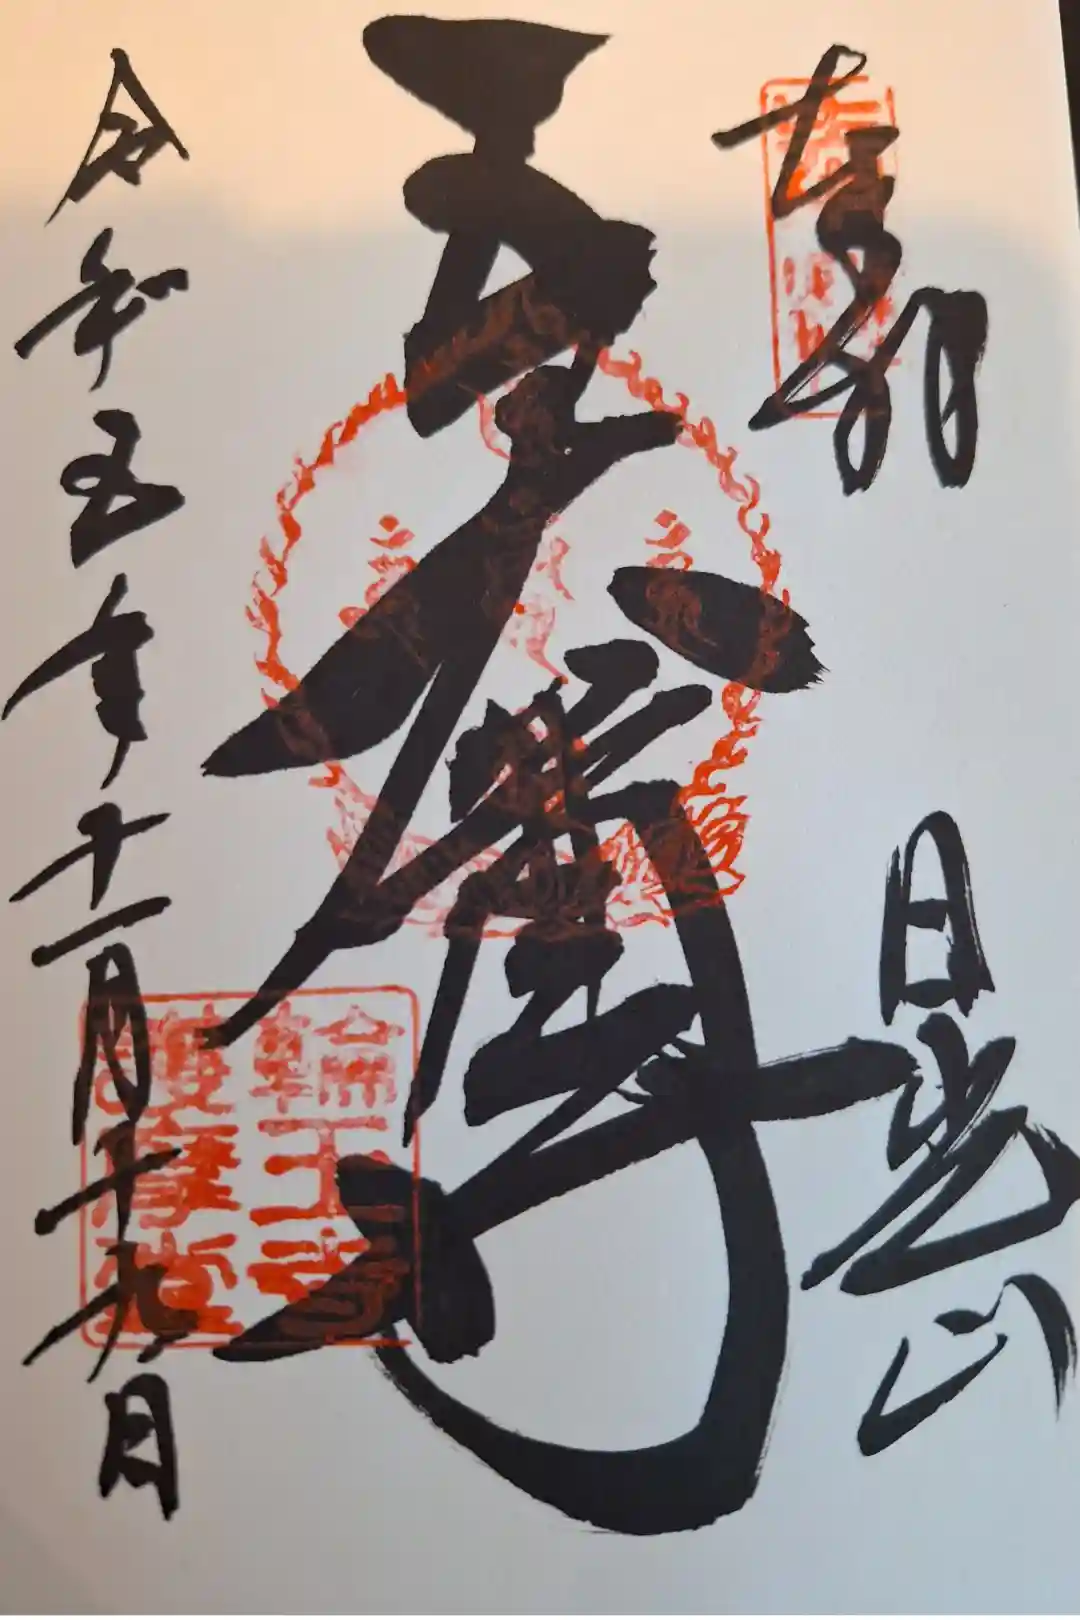 奉拝
日光山
五大尊
輪王寺
護摩堂
令和五年十一月十九日